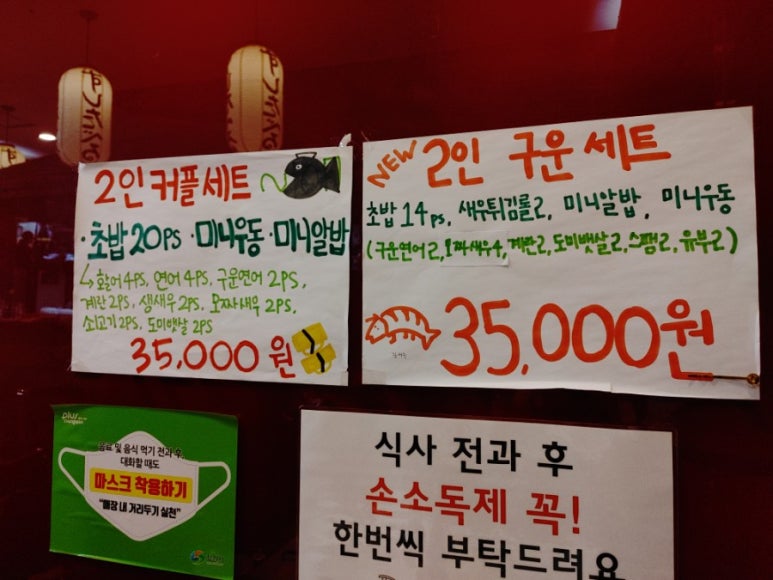 2인 커플세트
·초밥 20PS ·미니우동 ·미니알밥
↳활어 4PS, 연어 4PS, 구운연어 2PS,
계란 2PS, 생새우 2PS, 모짜새우 2PS,
쇠고기 2PS, 도미뱃살 2PS
35,000원
NEW 2인 구운세트
초밥 14PS, 새우튀김롤2, 미니알밥, 미니우동
(구운연어2, 모짜새우4, 계란2, 도미뱃살2, 스팸2, 유부2)
35,000원
plus
음료 및 음식 먹기 전과 후,
대화할 때도
마스크 착용하기
"매장 내 거리두기 실천"
식사 전과 후
손소독제 꼭!
한번씩 부탁드려요